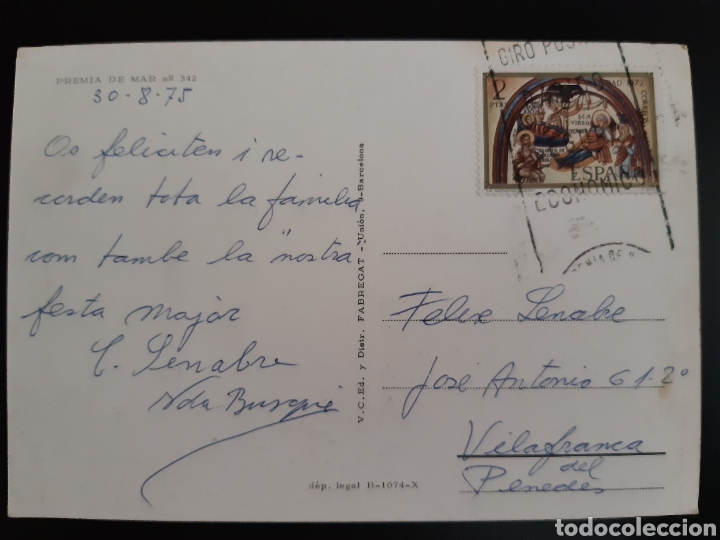 PREMIA DE MAR nº 342
30-8-75
Os feliciten i re-
corden tota la familia
com tambe la "nostra
festa major
C. Senabre
Nda Busqué
V. C. Ed. y Distr. FABREGAT - Unión, -Barcelona
dép. legal B-1074-X
GIRO POSTAL
2
PTAS
NAVIDAD 1972
CORREOS
ESPAÑA
ECONOMIC
Felix Senabre
José Antonio 61-2º
Vilafranca
del
Penedés
todocoleccion